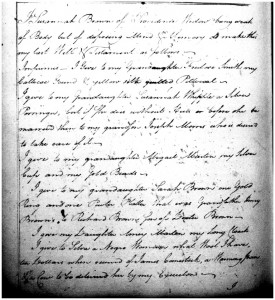 I Susannah Brown of Providence Widow being weak
of Body but of disposing Mind & Memory do make this
my last Will & Testament as follows
Imprimis I Give to my Grandaughter Smith my
Calico Gound & yellow silk quilted Petticoat
I give to my grandaughter Susannah Whipple a Silver
Porringer, but if She dies without Issue or before she be
married then to my grandson Joseph Brown who is desired
to take care of it.
I give to my grandaughter Abigail Martin my Silver
Cup and my Gold Beads
I give to my grandaughter Sarah Brown one Gold
Ring and one Pewter Platter that was grandfather
Browns & Richard Brown Son of Brown
I give my Daughter Martin my Long Cloak
I give to a Negro Woman what Wool I have,
an Iron
a Cow to be delivered her by my Executors